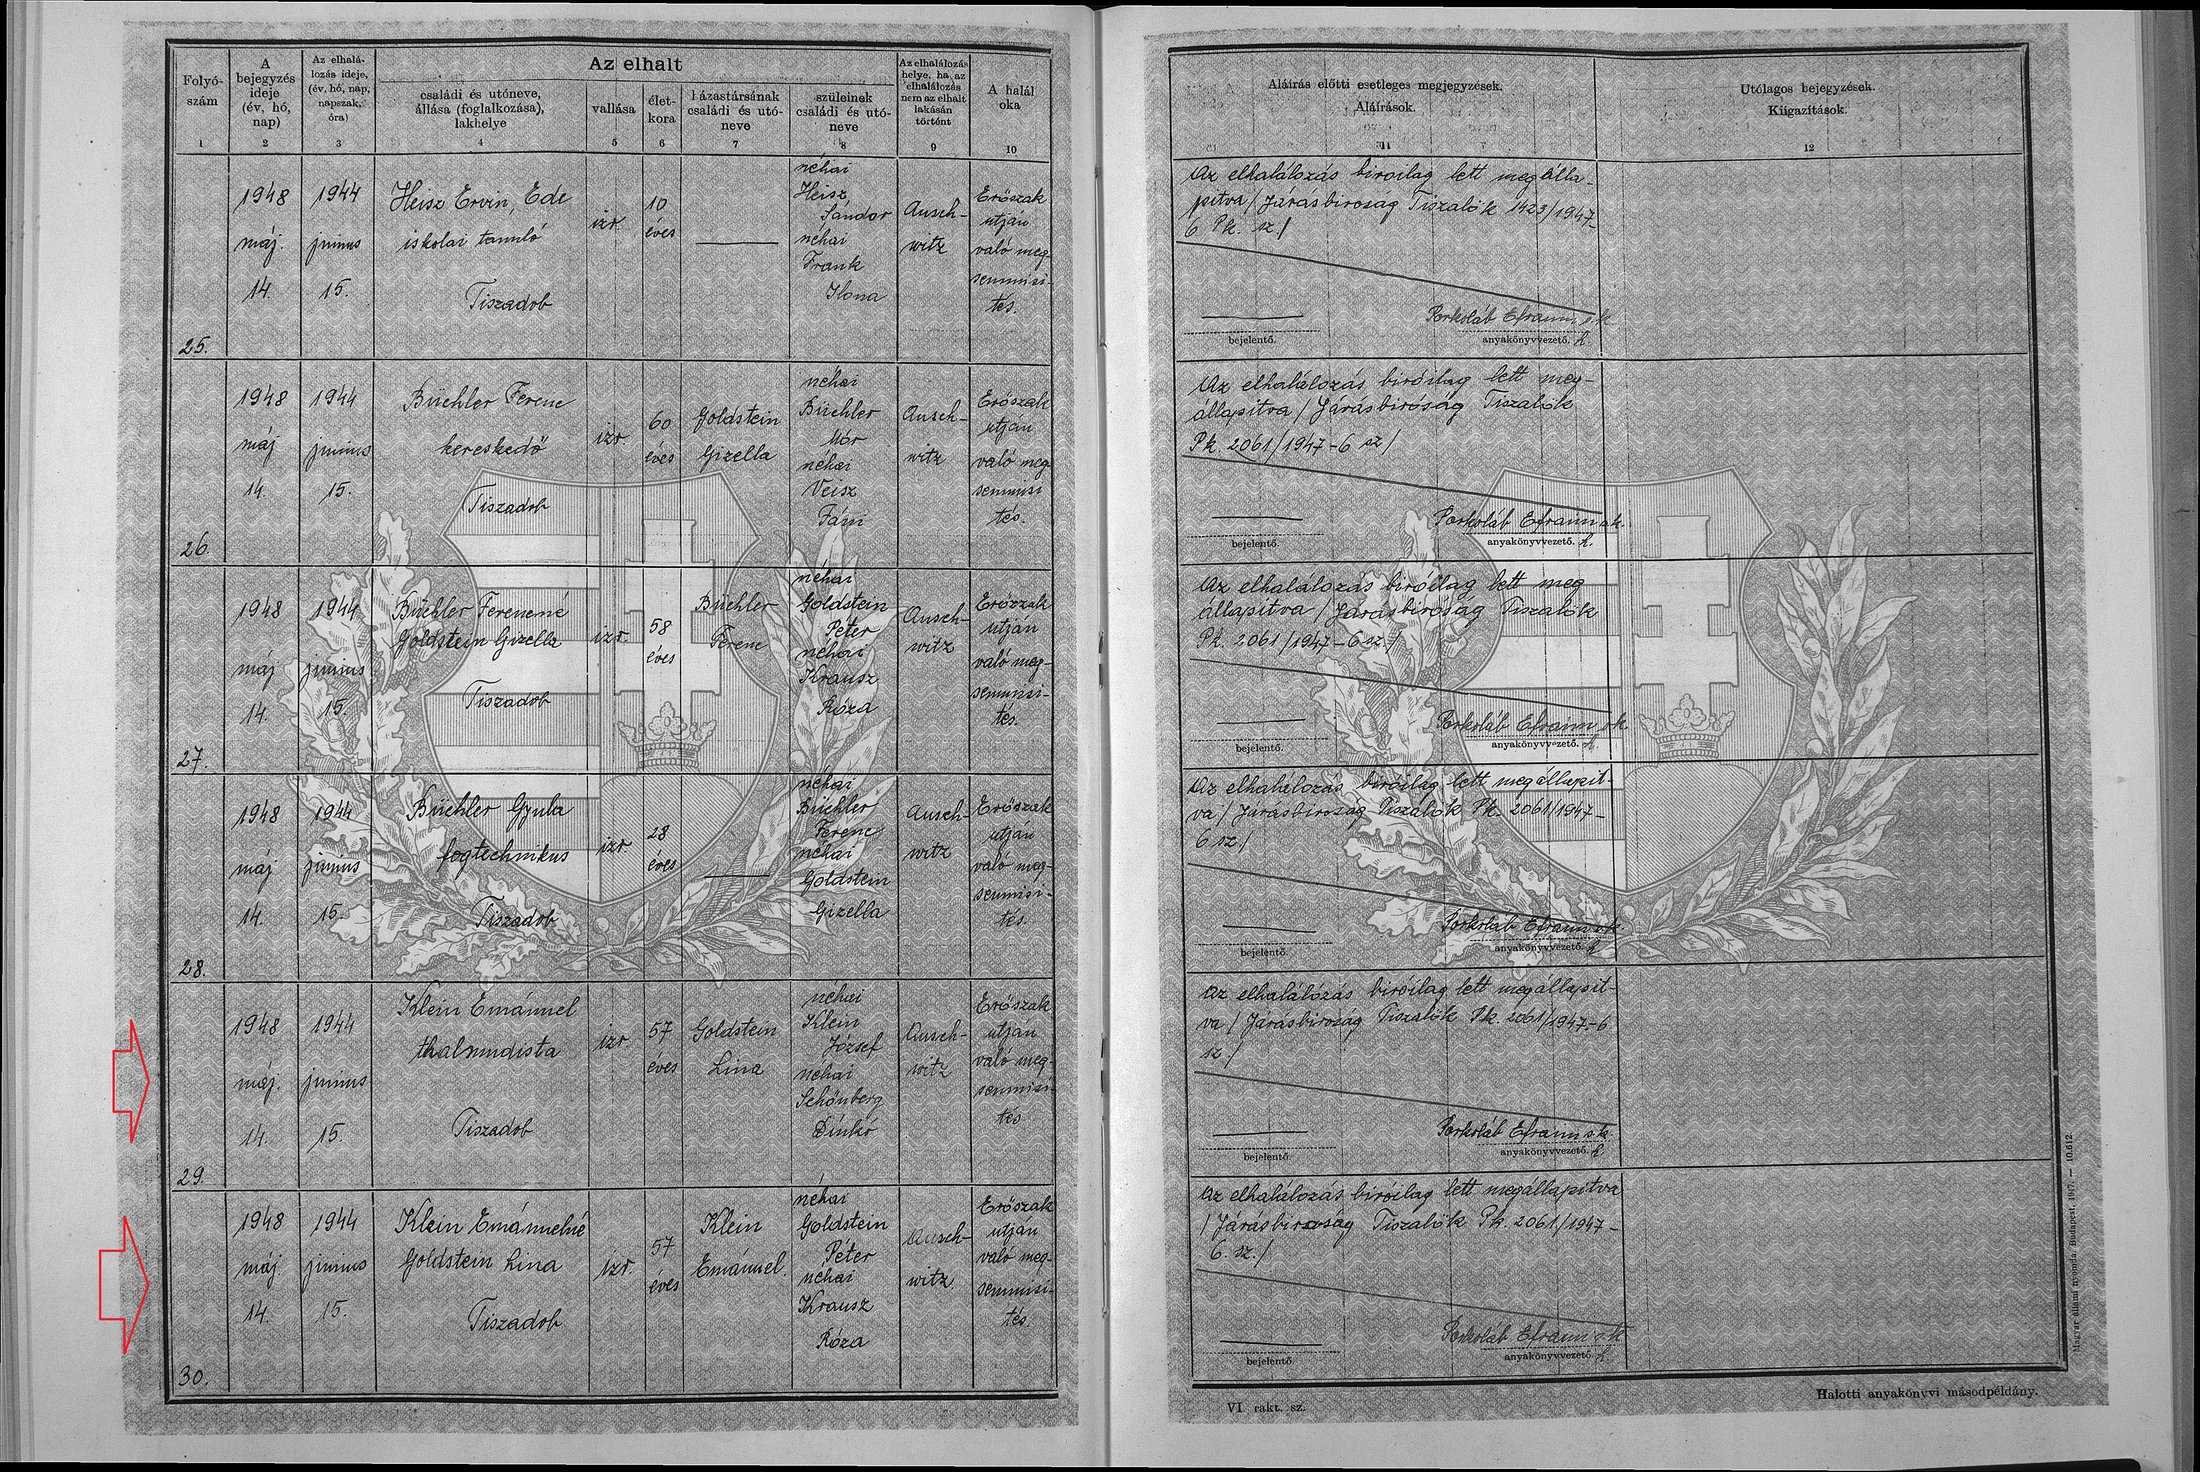 Folyó-
szám
1
A
bejegyzés
ideje
(év, hó,
nap)
2
Az elhalá-
lozás ideje,
(év, hó, nap,
napszak,
óra)
3
Az elhalt
családi és utóneve,
állása (foglalkozása),
lakhelye
4
vallása
5
élet-
kora
6
házastársának
családi és utó-
neve
7
szüleinek
családi és utó-
neve
8
Az elhalálozás
helye, ha az
elhalálozás
nem az elhalt
lakásán
történt
9
A halál
oka
10
Aláírás előtti esetleges megjegyzések.
Aláírások.
11
Utólagos bejegyzések.
Kiigazítások.
12
25.
1948
máj.
14.
1944
junius
15.
Heisz Ervin, Ede
iskolai tanuló
Tiszadob
izr.
10
éves
néhai
Heisz
Sándor
néhai
Frank
Ilona
Ausch-
witz
Erőszak
utján
való meg
semmisi-
tés.
Az elhalálozás biroilag lett megálla-
pitva / Járásbiroság Tiszalök 1423/1947-
6 Pk. sz./
Porkoláb Efraim s.k.
bejelentő.
anyakönyvvezető. h.
26.
1948
máj
14.
1944
junius
15.
Büchler Ferenc
kereskedő
Tiszadob
izr.
60
éves
Goldstein
Gizella
néhai
Büchler
Mór
néhai
Veisz
Fáni
Ausch-
witz
Erőszak
utján
való meg
semmisi
tés.
Az elhalálozás biróilag lett meg-
állapitva / Járásbiróság Tiszalök
Pk. 2061/1947-6 sz/
Porkoláb Efraim s.k.
bejelentő.
anyakönyvvezető. h.
27.
1948
máj
14.
1944
junius
15.
Büchler Ferencné
Goldstein Gizella
Tiszadob
izr.
58
éves
Büchler
Ferenc
néhai
Goldstein
Péter
néhai
Krausz
Róza
Ausch-
witz
Erőszak
utján
való meg-
semmisi-
tés.
Az elhalálozás biróilag lett meg
állapitva / Járásbiróság Tiszalök
Pk. 2061/1947-6 sz./
Porkoláb Efraim s.k.
bejelentő.
anyakönyvvezető. h.
28.
1948
máj
14.
1944
junius
15.
Büchler Gyula
fogtechnikus
Tiszadob
izr.
28
éves
néhai
Büchler
Ferenc
néhai
Goldstein
Gizella
Ausch-
witz
Erőszak
utján
való meg-
semmisi-
tés.
Az elhalálozás biróilag lett megállapit-
va / Járásbiroság Tiszalök Pk. 2061/1947-
6 sz./
Porkoláb Efraim s.k.
bejelentő.
anyakönyvvezető. h.
29.
1948
máj.
14.
1944
junius
15.
Klein Emánuel
thalmudista
Tiszadob
izr.
57
éves
Goldstein
Lina
néhai
Klein
József
néhai
Schönberg
Ausch-
witz
Erőszak
utján
való meg-
semmisi
tés
Az elhalálozás biróilag lett megállapit-
va / Járásbiroság Tiszalök Pk. 2061/1947-6
sz./
Porkoláb Efraim s.k.
bejelentő.
anyakönyvvezető. h.
30.
1948
máj
14.
1944
junius
15.
Klein Emánuelné
Goldstein Lina
Tiszadob
izr.
57
éves
Klein
Emánuel.
néhai
Goldstein
Péter
néhai
Krausz
Róza
Ausch-
witz
Erőszak
utján
való meg-
semmisi-
tés
Az elhalálozás biróilag lett megállapitva
/ Járásbiroság Tiszalök Pk. 2061/1947-
6. sz./
Porkoláb Efraim s.k.
bejelentő.
anyakönyvvezető. h.
VI. rakt. sz.
Halotti anyakönyvi másodpéldány.
Magyar állami nyomda Budapest, 1907. — 10.612